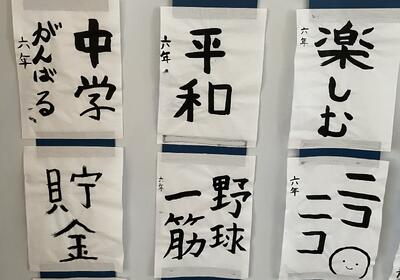 中学
がんばる
六年
平和
六年
楽しむ
六年
貯金
野球
一筋
六年
ニコ
ニコ
六年